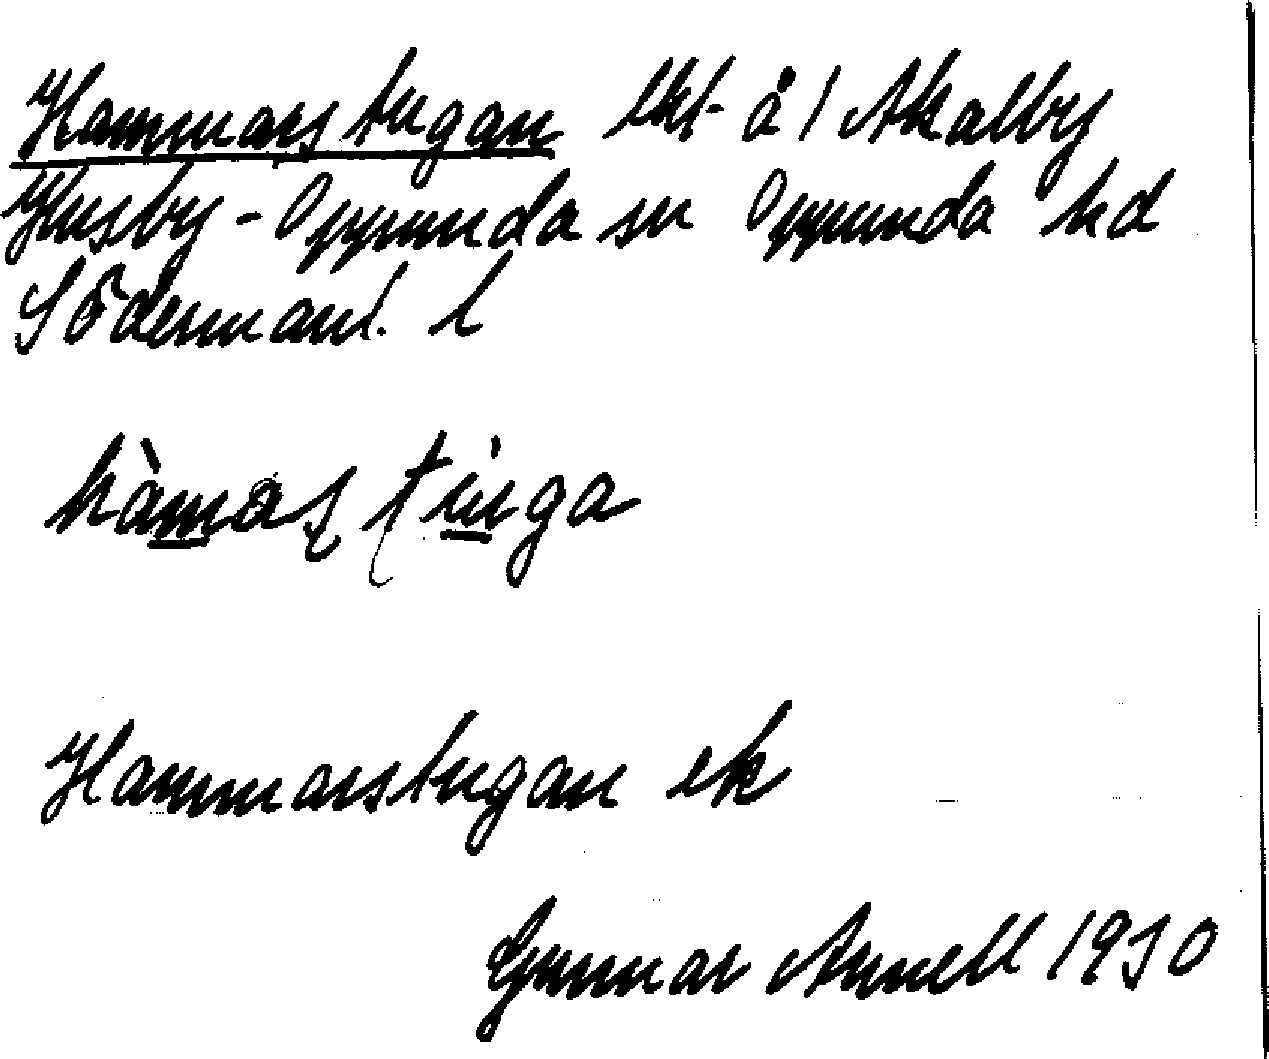 Hammarstugan lht å 1 Akalby
Husby-Oppunda sn Oppunda hd
Södermanl. l
hàmaʂ tùga
Hammarstugan ek
Gunnar Annell 1930